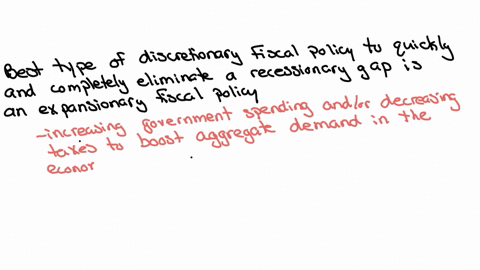 Best type of discretionary fiscal policy to quickly
and completely eliminate a recessionary gap is
an expansionary fiscal policy
-increasing government spending and/or decreasing
taxes to boost aggregate demand in the
econor